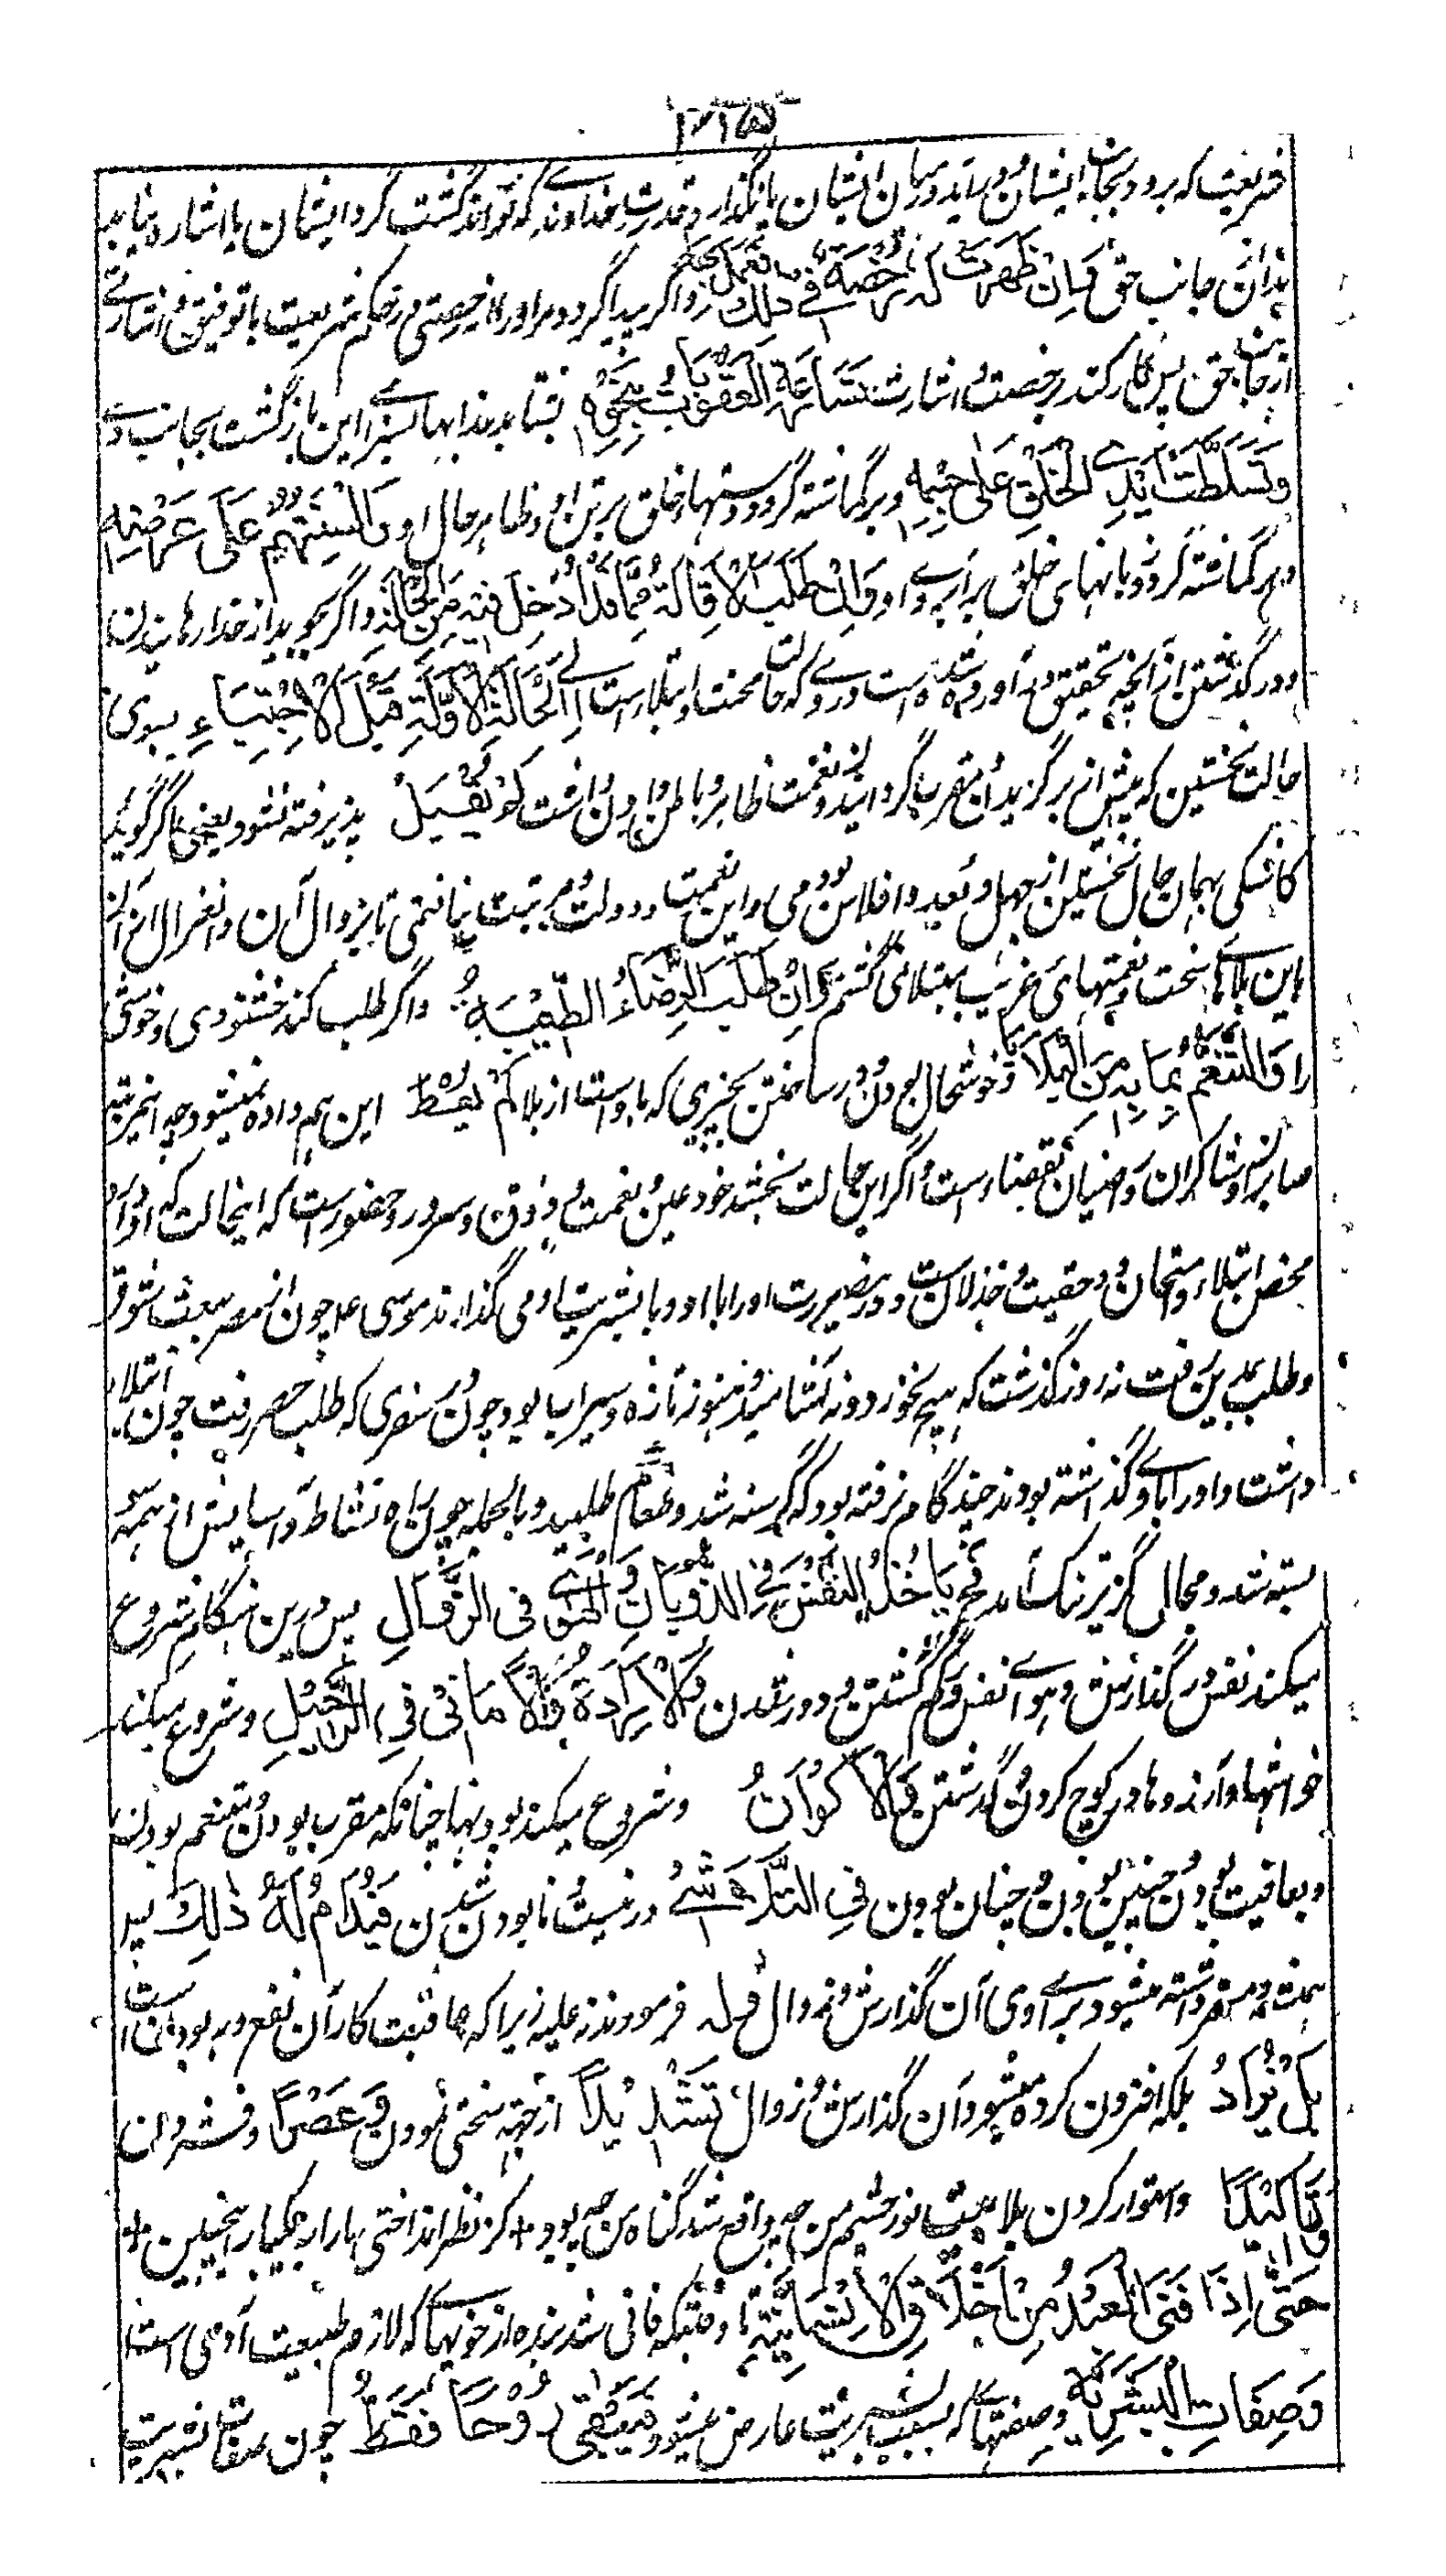 ۲۱۵
شریعت که برود بجانب ایشان و برآید و میان ایشان بانگذارد قدرت خداوندے که تواند گشت گرد ایشان یا اشاره نیابد
بدان جانب حق فَاِنْ ظَهَرَتْ لَهُ رُخْصَةٌ فِي ذٰلِكَ و اگر پیدا گردد مراورا رخصتی در حکم شریعت با توفیق و اشارتے
از جانب حق پس کار کند برخصت و اشارت تَسَارَعَتِ الْعُقُوبَاتُ نَحْوَهُ بشتابد عذابها بسزا این بازگشت بجانب وے
وَتَسَلَّطَتْ اَيْدِي الْخَلْقِ عَلٰى جِسْمِهِ و برگماشته گردد دستهاء خلق بر تن او و ظاهر حال او وَاَلْسِنَتُهُمْ عَلٰى عِرْضِهِ
و برگماشته گردد زبانهای خلق بر آبروے او وَاِنْ طَلَبَ الْاِقَالَةَ مِمَّا قَدْ اُدْخِلَ فِيهِ مِنَ الْحَالَةِ و اگر بجوید از خدا رهانیدن
و در گذشتن از آنچه بتحقیق در آورده شده است در وے که حالت محنت و ابتلا است اِلَى الْحَالَةِ الْاُولٰى قَبْلَ الْاِجْتِبَاءِ بسوی
حالت نخستین که پیش از برگزیدن و مقرب گردانیدن و نعمت ظاهر و باطن دادن داشت لَمْ يُقْبَلْ پذیرفته نشود یعنی اگر گوید
کاشکی بهمان حال نخستین از جهل و بعد و افلاس بودمی و این نعمت و دولت و مرتبت نیافتمی تا بزوال آن و انعزال از آن
باین بلاهای سخت و نقمتهای غریب مبتلا نمی گشتم وَاِنْ طَلَبَ الرِّضَاءَ وَالطِّيْبَةَ و اگر طلب کند خشنودی و خوشی
را وَالتَّنَعُّمَ بِمَا بِهِ مِنَ الْبَلَاءِ و خوشحال بودن و در ساختن بچیزی که با وست از بلا لَمْ يُعْطَ این هم داده نمیشود چه این مرتبه
صابران و شاکران و راضیان بقضا است و اگر این حالت بخشد خود عین نعمت و ذوق و سرور و حضور است که اینحالت که او دارد
محض ابتلاء و امتحان و حقیقت خذلان است و درین صورت اورا با او و با بشریت او می گذارند موسی ع چون از مصر بعشق و شوق
و طلب مدین رفت نه روز گذشت که هیچ نخورد و نه آشامید و هنوز تازه و سیراب بود و چون سفری که طلب خضر رفت چون ابتلا
داشت و اورا با و گذاشته بودند چند گام نرفته بود که گرسنه شد و طعام طلبید و بالجمله چون راه نشاط و آسایش از همه
بسته شد و مجال گزیر تنگ آمد فَحِيْنَئِذٍ يَاْخُذُ النَّفْسُ فِي الذَّوَبَانِ وَالْهَوٰى فِي الزَّوَالِ پس درین هنگام شروع
میکند نفس در گذارش و هوا نفس و کم گشتن و دور شدن وَالْاِرَادَةُ وَالْاَمَانِيُّ فِي الرَّحِيلِ و شروع میکند
خواهشها و آرزوها در کوچ کردن و گذشتن وَالْاَكْوَانُ و شروع میکند بودنها چنانکه مقرب بودن و متنعم بودن
و بعافیت بودن و چنین بودن و چنان بودن فِي التَّلَاشِي در نیست و نابود شدن فَيُدَامُ لَهُ ذٰلِكَ پس
همیشه داشته میشود برائے وی آن گذارش و زوال قوله فرمودند زیرا که عاقبت کار آن نفع و بهبود است
بَلْ يُزَادُ بلکه افزون کرده میشود آن گذارش و زوال تَشْدِيْدًا از جهت سختی نمودن وَعَصْرًا و فشردن
وَتَاكِيْدًا و استوار کردن بلا بیت نور چشم من چه واقع شد گناه من چه بود * کز نظر انداختی ما را بیکبار اینچنین *
حَتّٰى اِذَا فَنَى الْعَبْدُ مِنْ اَخْلَاقِ الْاِنْسَانِيَّةِ تا وقتیکه فانی شد بنده از خویهائے که لازم طبیعت آدمی است
وَصِفَاتِ الْبَشَرِيَّةِ و صفتهائے که بسبب بشریت عارض میشود فَيَبْقٰى رُوْحًا فَقَطْ چون صفات بشریت